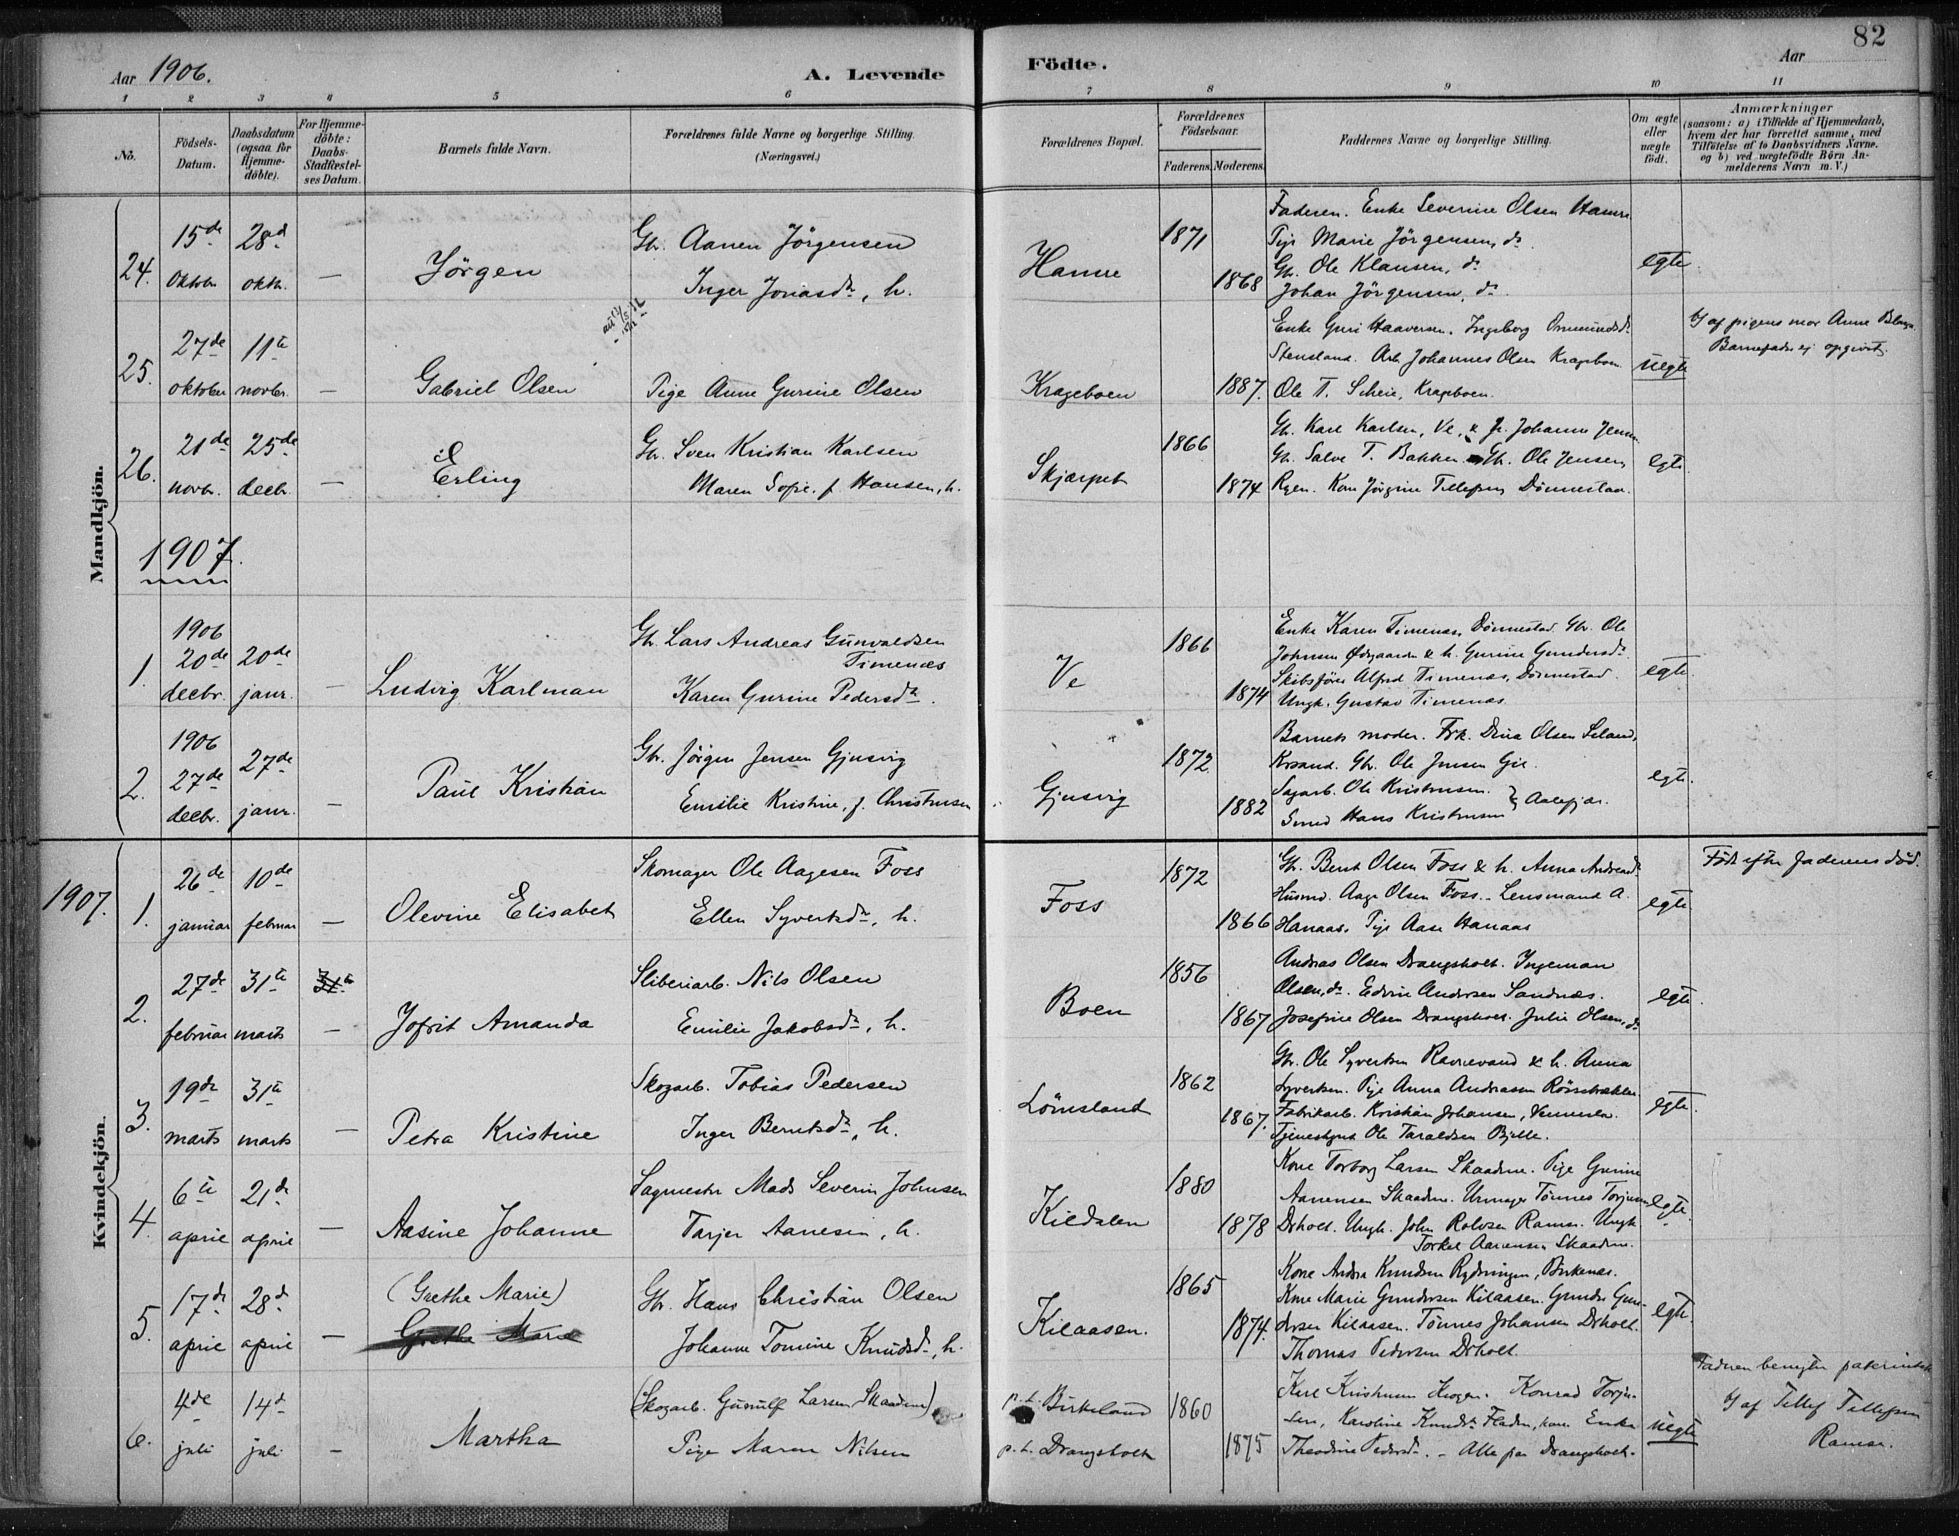 82
Aar 1906.
A. Levende
Födte.
Aar
1 2 3 4 5 6 7 8 9 10 11
No.
Födsels-Datum.
Daabsdatum (ogsaa for Hjemme-döbte).
For Hjemme-döbte: Daabs-Stadfæstel-ses Datum.
Barnets fulde Navn.
Forældrenes fulde Navne og borgerlige Stilling.
(Næringsvei.)
Forældrenes Bopæl.
Forældrenes Födselsaar.
Faderens. Moderens.
Faddernes Navne og borgerlige Stilling.
Om ægte eller uægte födt.
Anmærkninger
(saasom: a) i Tilfælde af Hjemmedaab, hvem der har forrettet samme, med Tilföielse af to Daabsvidners Navne. og b) ved uægtefödte Börn An-melderens Navn m. V.)
Mandkjön.
24.
15de oktober
28d oktbr.
—
Jörgen
Gbr. Aanen Jörgensen
Inger Jonasdtr, h.
Hamre
1871
1868
Faderen. Enke Severine Olsen Hamre
Pige Marie Jörgensen, ds.
Gbr. Ole Klausen, ds
Johan Jörgensen, ds.
egte.
25.
27de oktober
11te novbr.
—
Gabriel Olsen
Pige Anne Gurine Olsen
Krageboen
1887.
Enke Guri Haaversen. Ingeborg Ormundsdtr
Stensland. Arb. Johannes Olsen Krageboen
Ole T. Scheie, Krageboen.
uegte
af pigens mor Anne
Barnefader ej opgivet.
26.
21de novbr.
25de decbr.
—
Erling
Gbr. Sven Kristian Karlsen
Maren Sofie f. Hansen, h.
Skjærpet
1866
1874
Gbr. Karl Karlsen, Ve, & Johanne Jensen
Gbr. Salve T. Bakken Gbr. Ole Jensen
Ryen. Kone Jörgine Tellefsen Dönnestad.
egte.
1907.
1.
1906 20de decbr.
20de janr.
—
Ludvig Karlman
Gbr. Lars Andreas Gunvaldsen
Timenæs
Karen Gurine Pedersdtr.
Ve
1866
1874
Enke Karen Timenæs, Dönnestad. Gbr. Ole
Johnsen Ödegaarden & h. Gurine Gundersdtr
Skibsförer Alfred Timenæs, Dönnestad.
Ungk. Gustav Timenæs.
egte.
2.
1906 27de decbr.
27de janr.
—
Paul Kristian
Gbr. Jörgen Jensen Gjusvig
Emilie Kristine, f. Christensen
Gjusvig
1872
1882
Barnets moder. Frk. Dina Olsen Seland,
Krsand. Gbr. Ole Jensen Gie.
Sagarb. Ole Kristensen.
Smed Hans Kristensen } Aalefjær.
egte.
Kvindekjön.
1907.
1.
26de januar
10de februar
—
Olevine Elisabet
Skomager Ole Aagesen Foss
Ellen Syvertsdtr, h.
Foss
1872
1866
Gbr. Bent Olsen Foss & h. Anna Andreasdtr
Husmd. Aage Olsen Foss. - Lensmand A.
Hanaas. Pige Aase Hanaas
egte.
Född efter faderens död.
2.
27de februar
31te marts
31te
—
Jofrit Amanda
Sliberiarb. Nils Olsen
Emilie Jakobsdtr, h.
Boen
1856
1867
Andreas Olsen Drangsholt. Ingeman
Olsen, ds. Edvin Andersen Sandnæs.
Josefine Olsen Drangsholt. Julie Olsen, ds
egte.
3.
19de marts
31te marts
—
Petra Kristine
Skogarb. Tobias Pedersen
Inger Berntsdtr, h.
Lömsland
1862
1867.
Gbr. Ole Syvertsen Ravnevand & h. Anna
Syvertsen. Pige Anna Andreasen
Fabrikarb. Kristian Johansen, Vennesla.
Tjenestgut Ole Taraldsen Bjelle.
egte.
4.
6te april
21de april
—
Aasine Johanne
Sagmester Mads Severin Johnsen
Tarjer Aanesen, h.
Kildalen
1880
1878
Kone Torborg Larsen Skaadne. Pige Gurine
Aanensen Skaadne. Urmager Tönnes Torjusen
Drholt. Ungk. John Rolvsen Ramse. Ungk
Torkel Aanensen Skaadne.
egte.
5.
17de april
28de april
—
(Grethe Marie)
Grethe Marie
Gbr. Hans Christian Olsen
Johanne Tomine Knudsdtr, h.
Kilaasen.
1865
1874.
Kone Andrea Knudsen Rydningen, Birkenæs.
Kone Marie Gundersen Kilaasen. Gunder Gun-
dersen Kilaasen. Tönnes Johansen Drholt.
Thomas Pedersen Drholt.
egte.
6.
4de juli
14de juli
—
Martha
(Skogarb. Gunulf Larsen Skaadne)
Pige Maren Nilsen
p.t. Birkeland
p.t. Drangsholt
1860
1875
Karl Kristensen Konrad Torju-
sen, Karoline Knudsdtr Enke
Theodine Pedersdtr. - Alle paa Drangsholt.
uegte
Faderen benegter paternitet
af Tellef Tellefsen
Ramse.